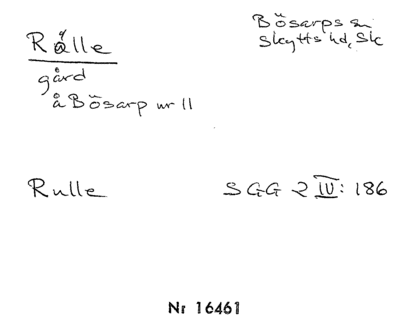 Rålle
Bösarps sn
Skytts hd, Sk
gård
å Bösarp nr 11
Rulle
SGG 2 IV: 186
Nr 16461